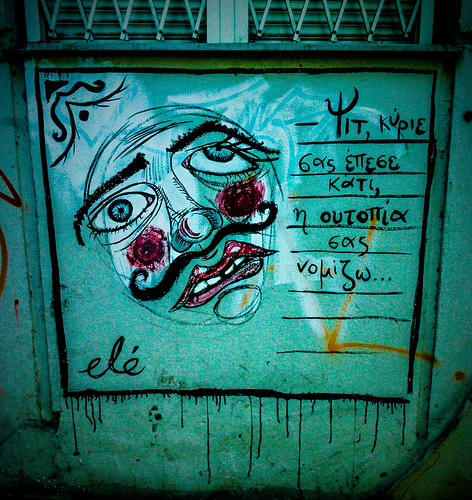 – Ψιτ, κύριε
σας έπεσε
κάτι,
η ουτοπία
σας
νομίζω...
elé